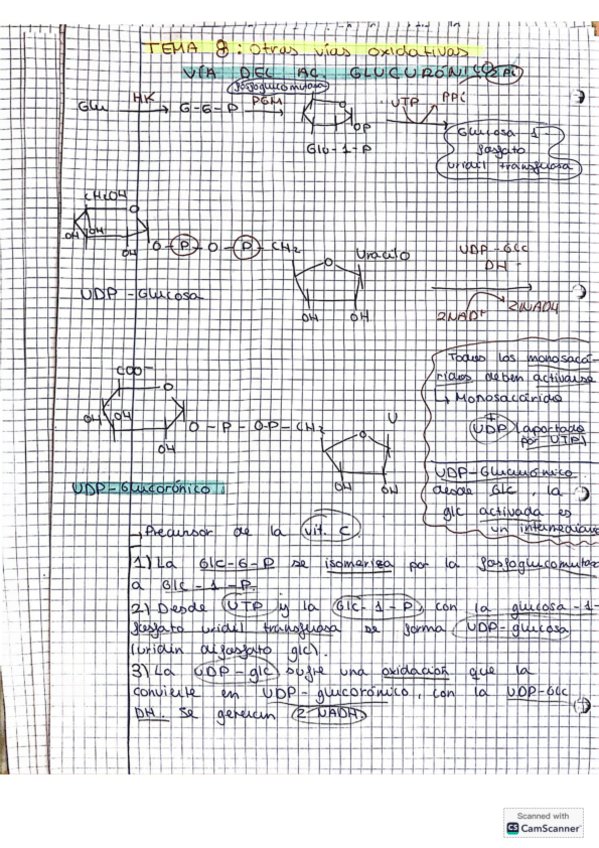 TEMA 8: Otras vías oxidativas
VÍA DEL AC. GLUCURÓNICO
fosfoglucomutasa
Glu HK G-6-P PGM UTP PPi
OP
Glu-1-P
Glucosa-1-
fosfato
uridil transferasa
CH2OH
O
OH OH
OH
O-P-O-P-CH2
Uracilo
O
OH OH
UDP-Glucosa
UDP-Glc
DH
2NAD+ 2NADH
Todos los monosacá-
ridos deben activarse
↳ Monosacárido
+
UDP (aportado
por UTP)
UDP-Glucurónico
desde Glc, la
glc activada es
un intermediario
COO-
O
OH OH
OH
O-P-O-P-CH2
U
O
OH OH
UDP-Glucorónico
→ Precursor de la vit. C.
1) La Glc-6-P se isomeriza por la fosfoglucomutasa
a Glc-1-P.
2) Desde UTP y la Glc-1-P, con la glucosa-1-
fosfato uridil transfuosa se forma UDP-glucosa
(uridin difosfato glc).
3) La UDP-glc sufre una oxidación que la
convierte en UDP-glucorónico, con la UDP-Glc
DH. Se generan 2 NADH.
Scanned with
CS CamScanner